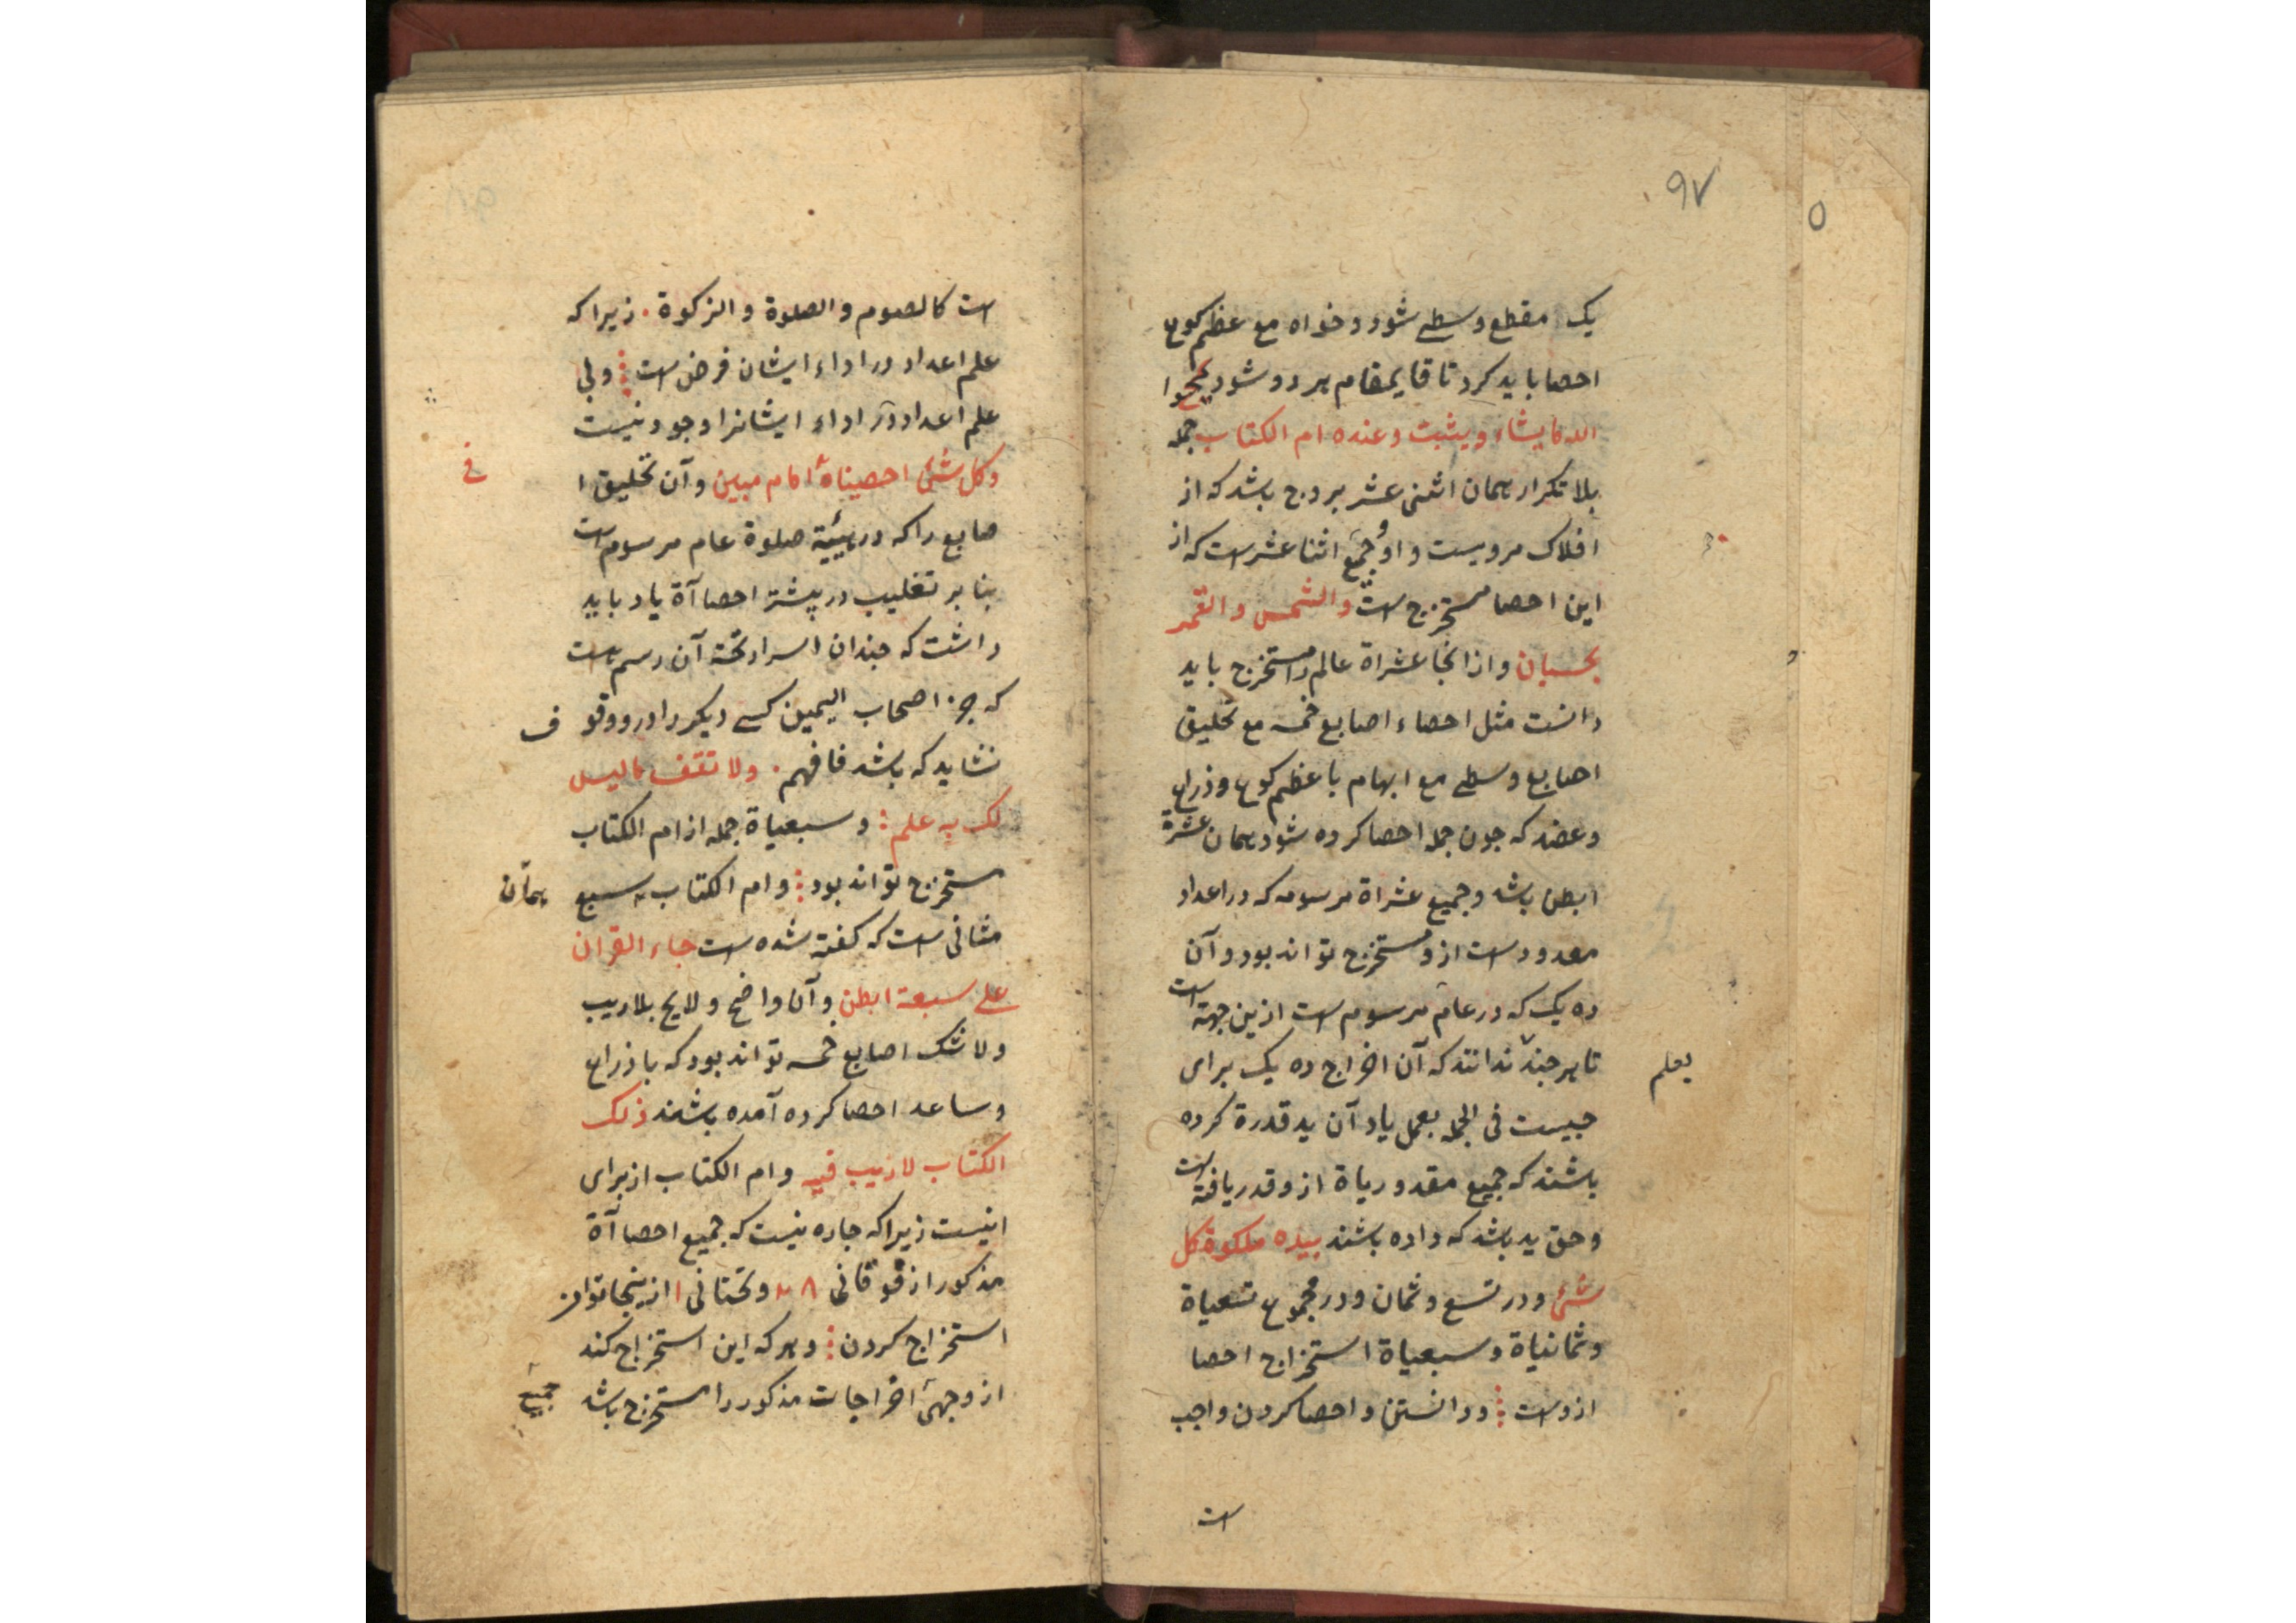 ۹۷
یک مقطع وسطی شود و خواه مع عظم کوع
احصا باید کرد تا قایمقام هر دو شود یمحوا
الله ما یشاء و یثبت و عنده ام الکتاب جمله
بلا تکرار همان اثنی عشر بروج باشد که از
افلاک مرویست و او جمع اثنا عشر است که از
این احصا مستخرج است والشمس والقمر
بحسبان و ازانجا عشراة عالم را مستخرج باید
دانست مثل احصاء اصابع خمسه مع تحلیق
اصابع وسطی مع ابهام با عظم کوع و ذراع
و عضد که جون جمله احصا کرده شود همان عشرة
ابطن باشد و جمیع عشراة مرسومه که در اعداد
معدودست ازو مستخرج تواند بود و آن
ده یک که در عام مرسوم است ازین جهته است
تا هر جند ندانند که آن اخراج ده یک برای
یعلم
جیست فی الجمله بعمل یاد آن ید قدرة کرده
باشند که جمیع مقدوریاة ازو قدر یافته است
و حق ید باشد که داده باشند بیده ملکوة کل
شئ و در تسع و ثمان و در مجموع تسعیاة
و ثمانیاة و سبعیاة استخراج احصا
ازوست و دانستن و احصا کردن واجب
است
است کالصوم والصلوة والزکوة . زیرا که
علم اعداد در اداء ایشان فرض است ولی
علم اعداد در اداء ایشانرا وجود نیست
وکل شئ احصیناه امام مبین و آن تحلیق ا
فی
صابع را که در هیئیة صلوة عام مرسوم است
بنا بر تغلیب در بیشتر احصاآة یاد باید
داشت که جندان اسرار تحته آن رسم است
که جز اصحاب الیمین کسی دیکر را درو وقوف
نشاید که باشد فافهم . ولا تقف ما لیس
لک به علم و سبعیاة جمله از ام الکتاب
مستخرج تواند بود و ام الکتاب سبع
همان
مثانی است که کفته شده است جاء القران
علی سبعة ابطن و آن واضح و لایح بلاریب
ولا شک اصابع خمسه تواند بود که با ذراع
و ساعد احصا کرده آمده باشند ذلک
الکتاب لاریب فیه و ام الکتاب از برای
اینست زیرا که جاره نیست که جمیع احصاآة
مذکور از فوقانی و تحتانی ازینجا توان
استخراج کردن و هر که این استخراج کند
از وجهی اخراجات مذکور را مستخرج باشد
جمیع